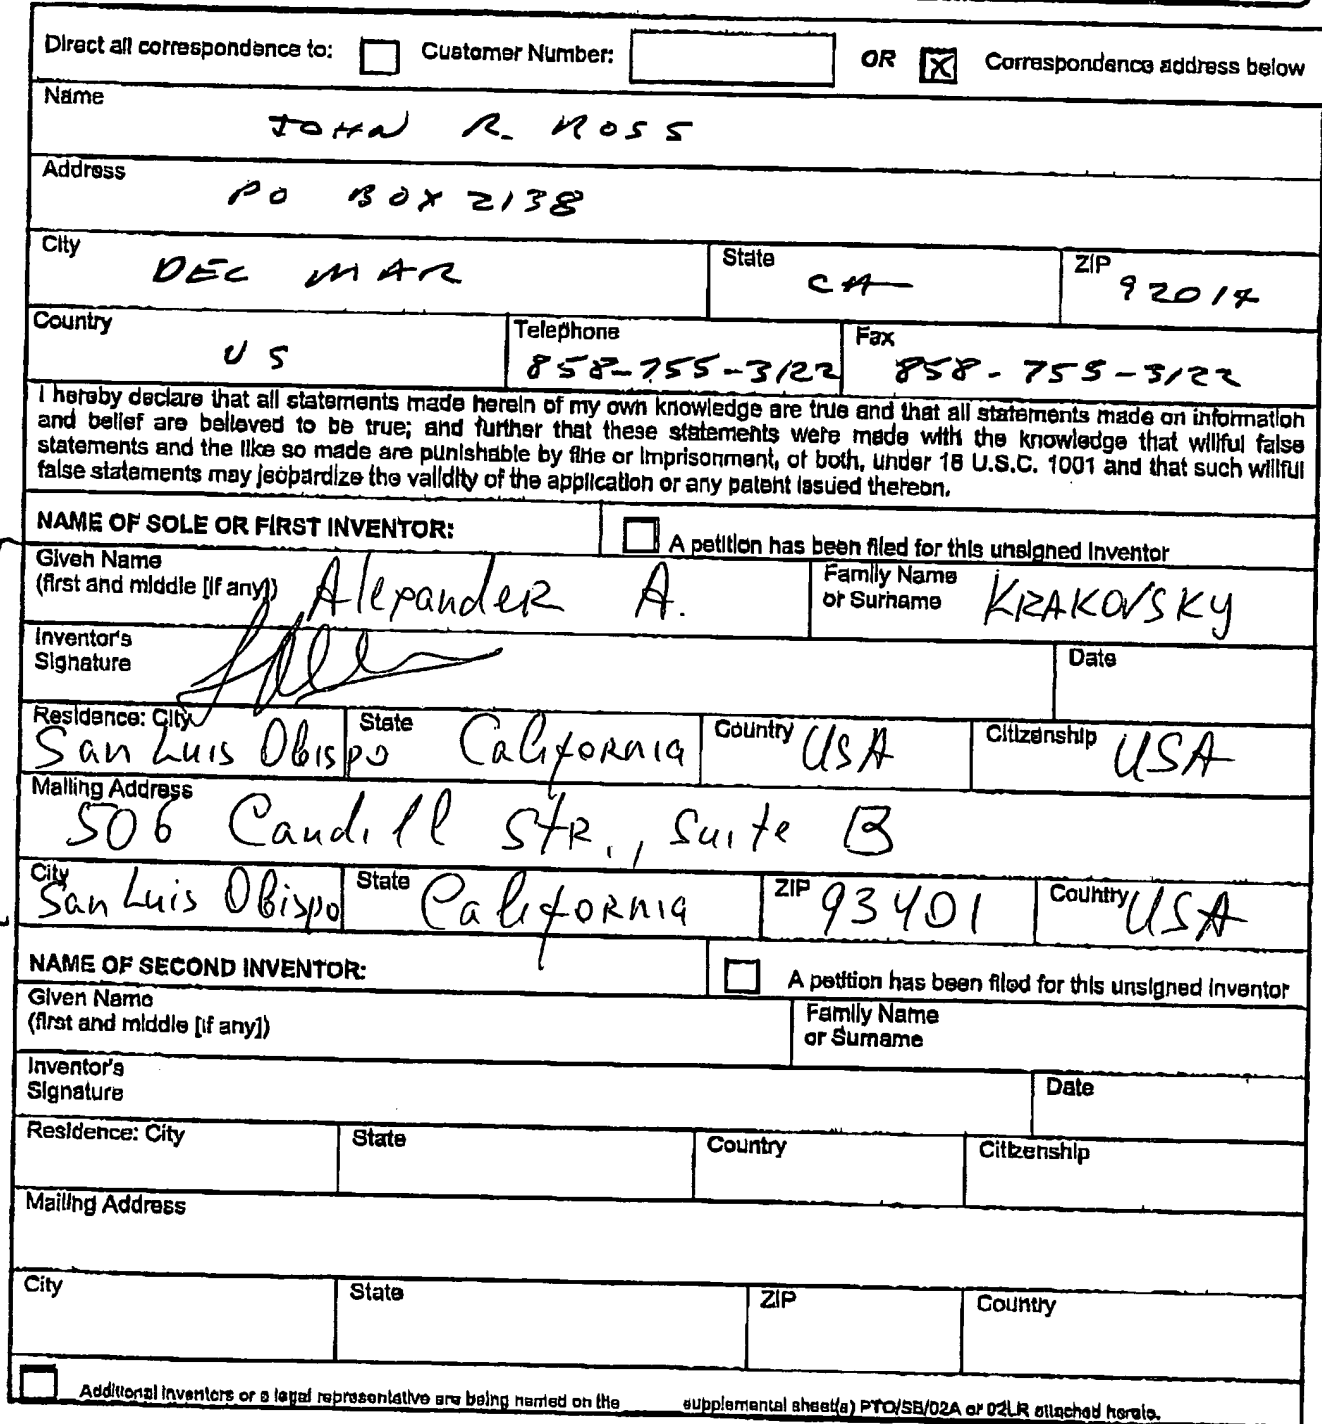 Direct all correspondence to: Customer Number: OR X Correspondence address below
Name
JOHN R. ROSS
Address
PO BOX 2138
City DEL MAR State CA ZIP 92014
Country US Telephone 858-755-3122 Fax 858-755-3122
I hereby declare that all statements made herein of my own knowledge are true and that all statements made on information
and belief are believed to be true; and further that these statements were made with the knowledge that willful false
statements and the like so made are punishable by fine or imprisonment, or both, under 18 U.S.C. 1001 and that such willful
false statements may jeopardize the validity of the application or any patent issued thereon.
NAME OF SOLE OR FIRST INVENTOR: A petition has been filed for this unsigned inventor
Given Name
(first and middle [if any]) Alexander A. Family Name
or Surname KRAKOVSKY
Inventor's
Signature Date
Residence: City San Luis Obispo State California Country USA Citizenship USA
Mailing Address
506 Caudill Str., Suite B
City San Luis Obispo State California ZIP 93401 Country USA
NAME OF SECOND INVENTOR: A petition has been filed for this unsigned inventor
Given Name
(first and middle [if any]) Family Name
or Surname
Inventor's
Signature Date
Residence: City State Country Citizenship
Mailing Address
City State ZIP Country
Additional inventors or a legal representative are being named on the supplemental sheet(s) PTO/SB/02A or 02LR attached hereto.